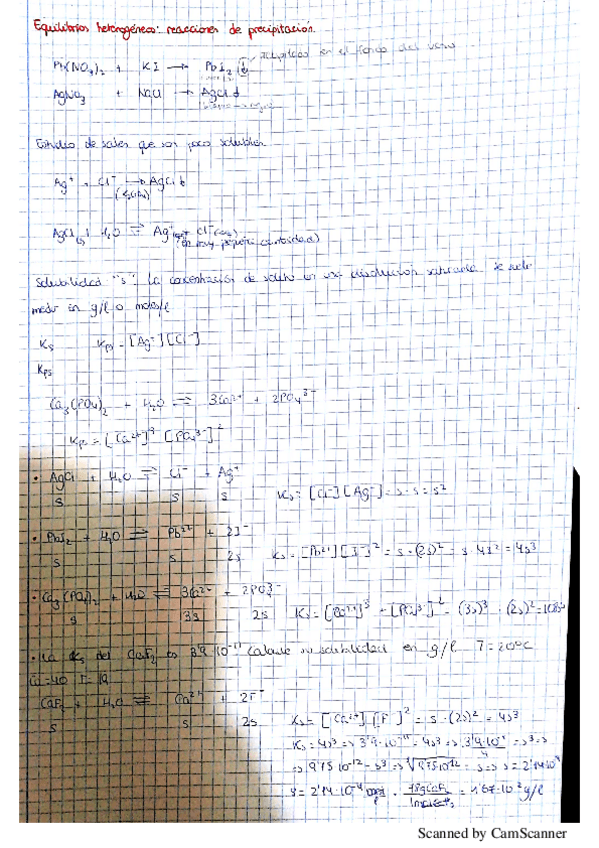 Equilibrios heterogéneos: reacciones de precipitación.
Pb(NO₃)₂ + KI → PbI₂↓ en el fondo del vaso
AgNO₃ + NaCl → AgCl↓
Estudio de sales que son poco solubles
Ag⁺ + Cl⁻ → AgCl↓
AgCl(s) + H₂O ⇌ Ag⁺(aq) + Cl⁻(aq)
(en muy pequeña cantidad)
Solubilidad "s": La concentración de soluto en una disolución saturada. Se suele
medir en g/l o moles/l
Ks Kps = [Ag⁺][Cl⁻]
Kps
Ca₃(PO₄)₂ + H₂O ⇌ 3Ca²⁺ + 2PO₄³⁻
Kps = [Ca²⁺]³ [PO₄³⁻]²
• AgCl + H₂O ⇌ Cl⁻ + Ag⁺
s s s Ks = [Cl⁻][Ag⁺] = s · s = s²
• PbI₂ + H₂O ⇌ Pb²⁺ + 2I⁻
s s 2s Ks = [Pb²⁺][I⁻]² = s · (2s)² = s · 4s² = 4s³
• Ca₃(PO₄)₂ + H₂O ⇌ 3Ca²⁺ + 2PO₄³⁻
s 3s 2s Ks = [Ca²⁺]³ · [PO₄³⁻]² = (3s)³ · (2s)² = 108s⁵
• La Ks del CaF₂ es 3'9·10⁻¹¹ Calcule su solubilidad en g/l T=20ºC
Ca=40 F=19
CaF₂ + H₂O ⇌ Ca²⁺ + 2F⁻
s s 2s Ks = [Ca²⁺][F⁻]² = s · (2s)² = 4s³
Ks = 4s³ ⇒ 3'9·10⁻¹¹ = 4s³ ⇒ 3'9·10⁻¹¹/4 = s³ ⇒
⇒ 9'75·10⁻¹² = s³ ⇒ ∛9'75·10⁻¹² = s ⇒ s = 2'14·10⁻⁴
s = 2'14·10⁻⁴ mol/l · 78g CaF₂/1mol CaF₂ = 1'67·10⁻² g/l
Scanned by CamScanner